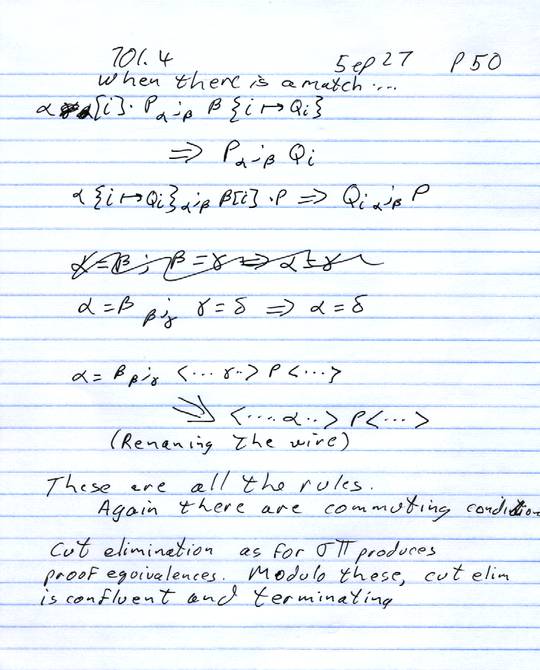 701.4 Sep 27 P 50
When there is a match ....
α[i]. P α;β β {i ↦ Qi}
⇒ P α;β Qi
α {i ↦ Qi} α;β β[i] . P ⇒ Qi α;β P
α = β ; β = γ ⇒ α = γ
α = β β;γ γ = δ ⇒ α = δ
α = β β;γ <... γ..> P <...>
⇒ <.... α ..> P <...>
(Renaming the wire)
These are all the rules.
Again there are commuting condition
Cut elimination as for σπ produces
proof equivalences. Modulo these, cut elim
is confluent and terminating